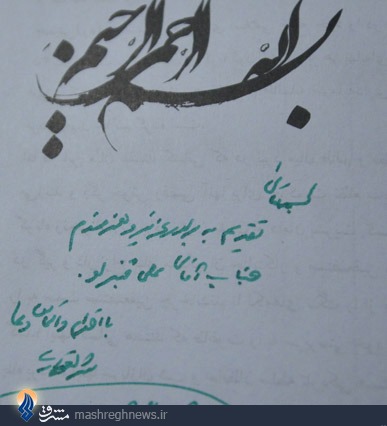 بسم الله الرحمن الرحیم
بسمه تعالی
تقدیم به برادر عزیز و هنرمندم
جناب آقای علی قنبرلو.
با احترام و التماس دعا
مشرق
mashreghnews.ir